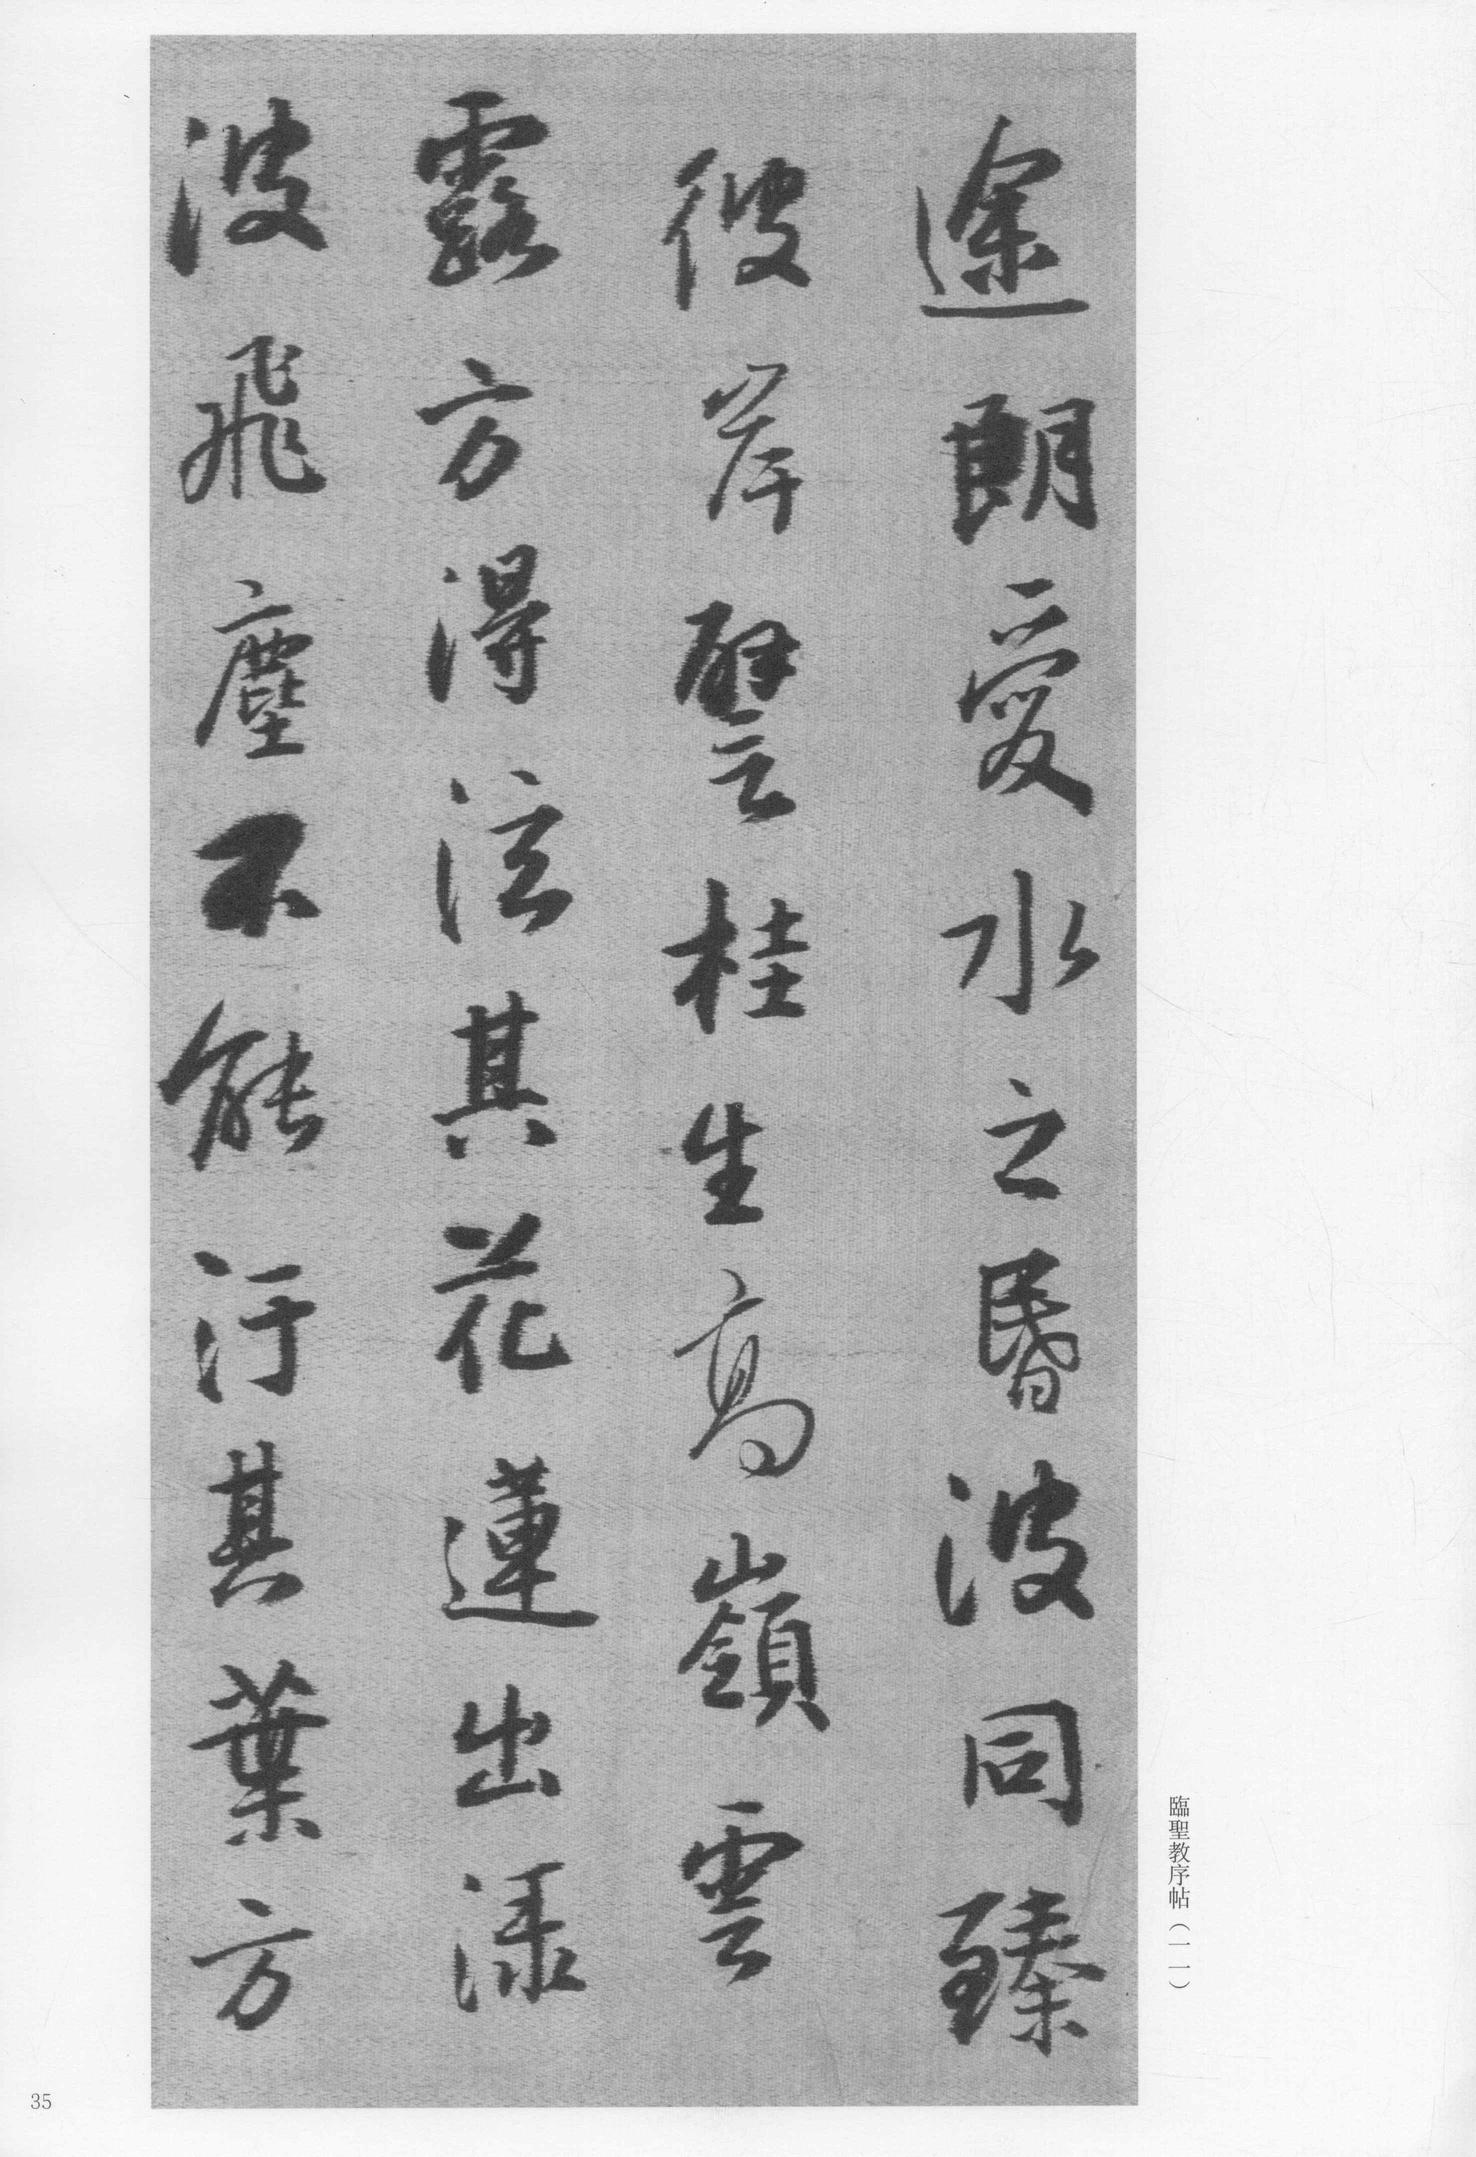 途朗愛水之昏波同臻
彼岸譬桂生高嶺雲
露方得泫其花蓮出淥
波飛塵不能汙其葉方
臨聖教序帖（一一）
35